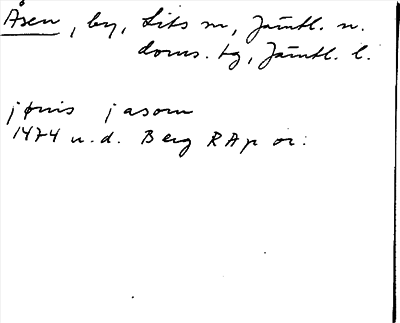 Åsen, by, Lits sn, Jämtl. n.
doms. tg, Jämtl. l.
jønis j asom
1474 u.d. Berg RAp or: